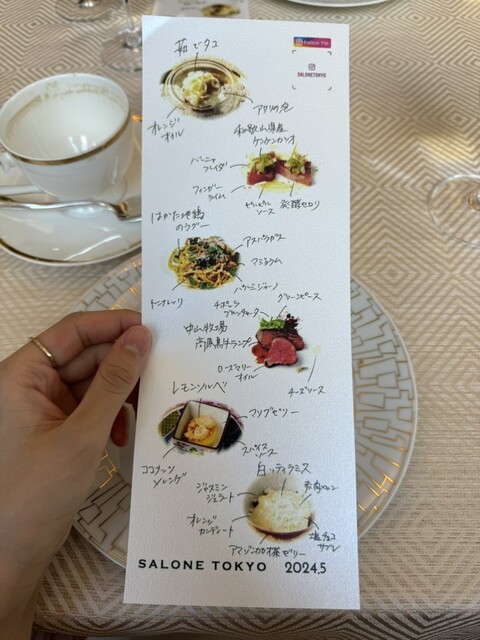 茹でタコ
SALONETOKYO
アサリの泡
オレンジ
オイル
和歌山県産
ケンケンカツオ
バーニャ
フレイダ
フィンガー
ライム
ピルピル
ソース
発酵セロリ
はかた地鶏
のラグー
アスパラガス
マジョラム
パルミジャーノ
トンナレッリ
チポッラ
ブルチャータ
グリーンピース
中山牧場
高原黒牛ランプ
ローズマリー
オイル
チーズソース
レモンソルベ
マリブゼリー
スパイス
ソース
ココナッツ
メレンゲ
白いティラミス
ジャスミン
ジェラート
赤肉メロン
オレンジ
カンディート
塩チョコ
サブレ
アマゾンカカオ棒ゼリー
SALONE TOKYO 2024.5